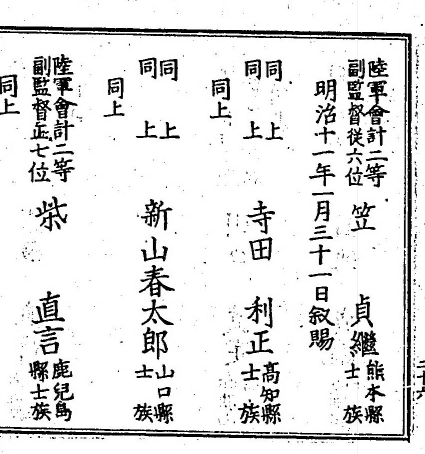 陸軍會計二等副監督從六位 笠 貞繼 熊本縣士族
明治十一年一月三十一日叙賜
同上 同上 寺田 利正 高知縣士族
同上
同上 同上 新山春太郎 山口縣士族
同上
陸軍會計二等副監督正七位 柴 直言 鹿兒島縣士族
同上
二十六